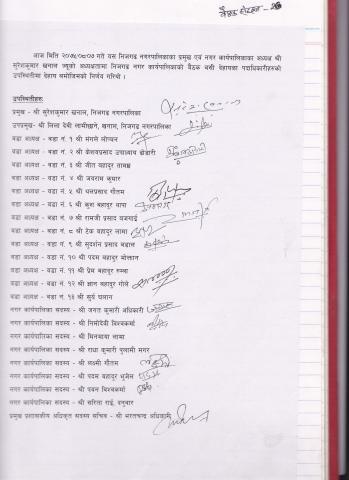 बैठक संख्या - २०
आज मिति २०७५/०८/०७ गते यस निजगढ नगरपालिकाका प्रमुख एवं नगर कार्यपालिकाका अध्यक्ष श्री
सुरेशकुमार खनाल ज्यूको अध्यक्षतामा निजगढ नगर कार्यपालिकाको बैठक बसी देहायका पदाधिकारीहरुको
उपस्थितीमा देहाय बमोजिमको निर्णय गरियो ।
उपस्थितीहरु
प्रमुख - श्री सुरेशकुमार खनाल, निजगढ नगरपालिका
उपप्रमुख - श्री लिला देवी लामीछाने, खनाल, निजगढ नगरपालिका
वडा अध्यक्ष - वडा नं. १ श्री मंगले लोप्चन
वडा अध्यक्ष - वडा नं. २ श्री केशवप्रसाद उपाध्याय छेडारी
वडा अध्यक्ष - वडा नं. ३ श्री जीत बहादुर तामाङ
वडा अध्यक्ष - वडा नं. ४ श्री जयराम कुमार
वडा अध्यक्ष - वडा नं. ५ श्री धनप्रसाद गौतम
वडा अध्यक्ष - वडा नं. ६ श्री कुश बहादुर थापा
वडा अध्यक्ष - वडा नं. ७ श्री रामजी प्रसाद बजगाई
वडा अध्यक्ष - वडा नं. ८ श्री टेक बहादुर लामा
वडा अध्यक्ष - वडा नं. ९ श्री सुदर्शन प्रसाद बडाल
वडा अध्यक्ष - वडा नं. १० श्री पदम बहादुर मोक्तान
वडा अध्यक्ष - वडा नं. ११ श्री प्रेम बहादुर रुम्बा
वडा अध्यक्ष - वडा नं. १२ श्री ज्ञान बहादुर गोले
वडा अध्यक्ष - वडा नं. १३ श्री सुर्य घलान
नगर कार्यपालिका सदस्य - श्री जगत कुमारी अधिकारी
नगर कार्यपालिका सदस्य - श्री निर्मादेवी विश्वकर्मा
नगर कार्यपालिका सदस्य - श्री मिनमाया लामा
नगर कार्यपालिका सदस्य - श्री राधा कुमारी पुलामी मगर
नगर कार्यपालिका सदस्य - श्री लक्ष्मी गौतम
नगर कार्यपालिका सदस्य - श्री पदम बहादुर भुजेल
नगर कार्यपालिका सदस्य - श्री पवन विश्वकर्मा
नगर कार्यपालिका सदस्य - श्री सरिता राई, दनुवार
प्रमुख प्रशासकीय अधिकृत सदस्य सचिव - श्री भरतचन्द्र अधिकारी